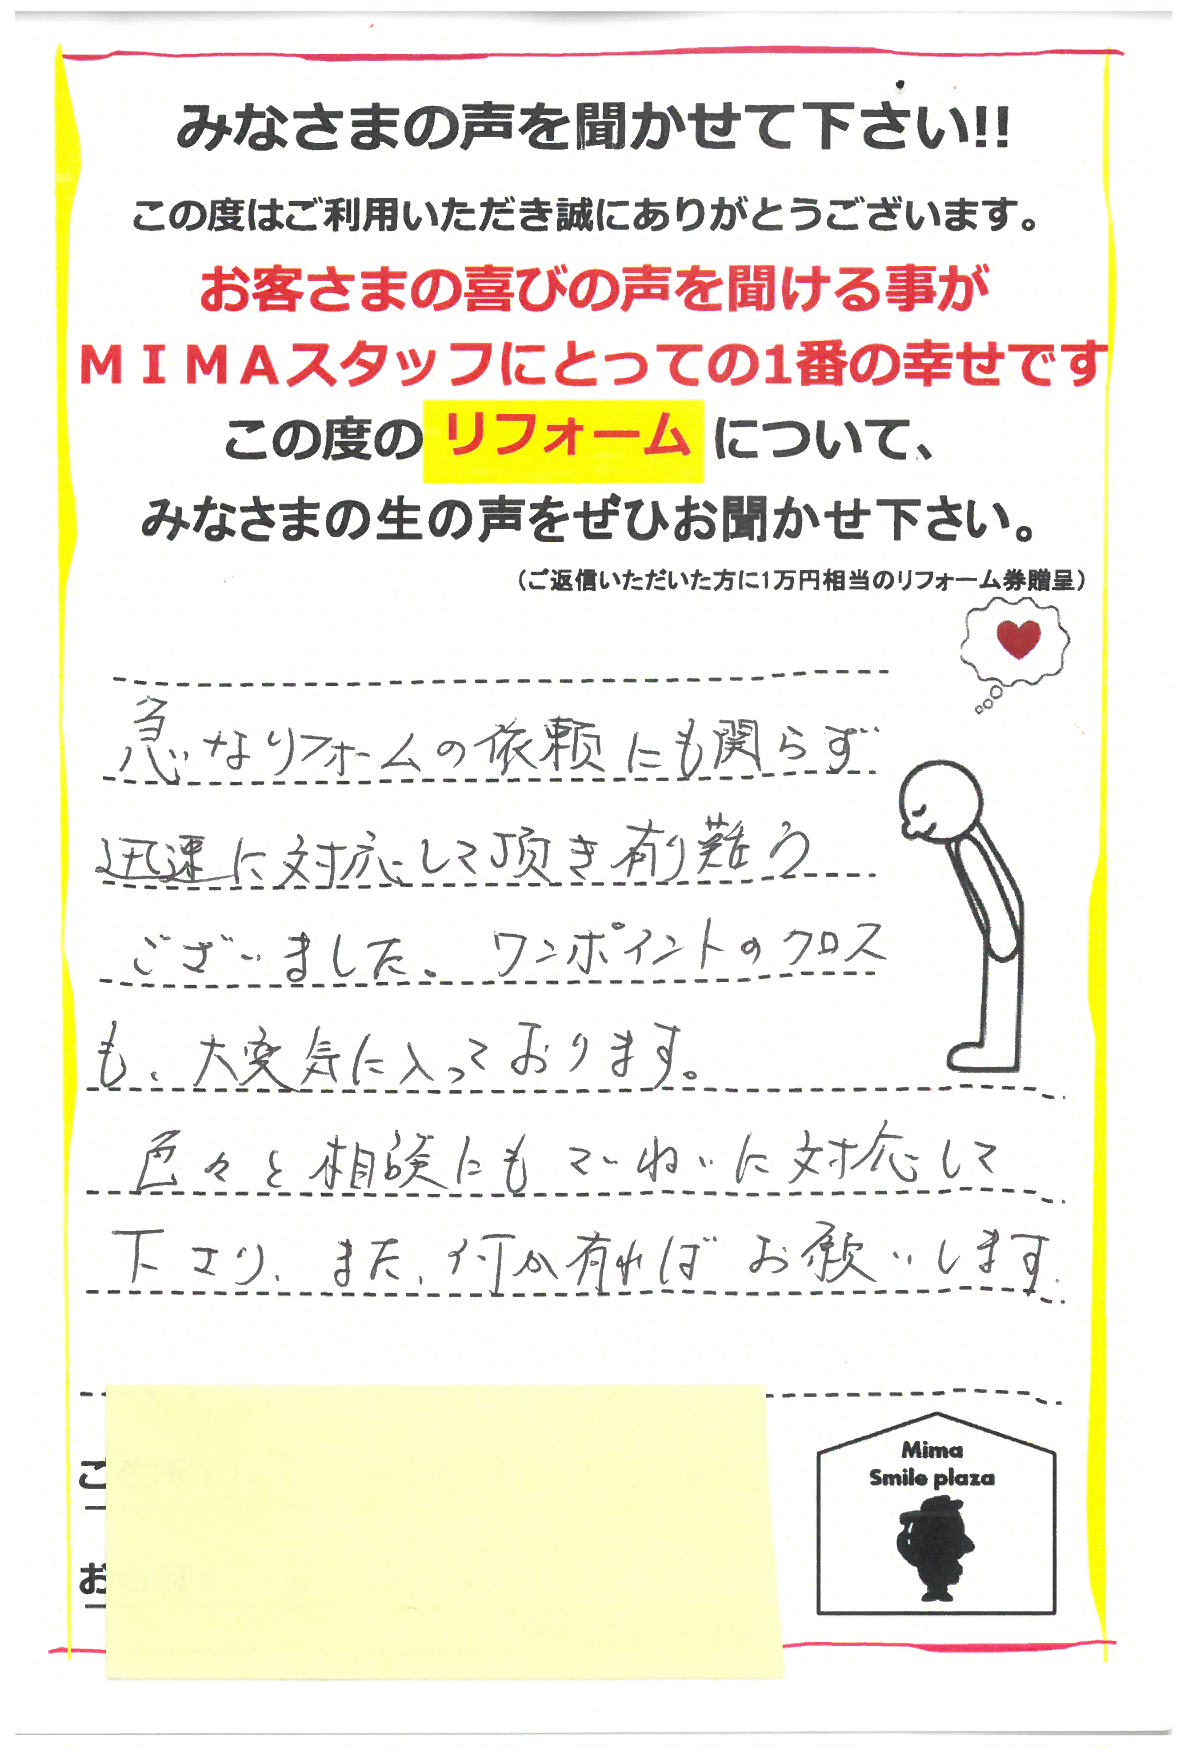 みなさまの声を聞かせて下さい!!
この度はご利用いただき誠にありがとうございます。
お客さまの喜びの声を聞ける事が
MIMAスタッフにとっての1番の幸せです
この度のリフォームについて、
みなさまの生の声をぜひお聞かせ下さい。
(ご返信いただいた方に1万円相当のリフォーム券贈呈)
急なリフォームの依頼にも関らず
迅速に対応して頂き有り難う
ございました。ワンポイントのクロス
も、大変気に入っております。
色々と相談にもていねいに対応して
下さり、また、何か有ればお願いします.
Mima
Smile plaza
ご
お